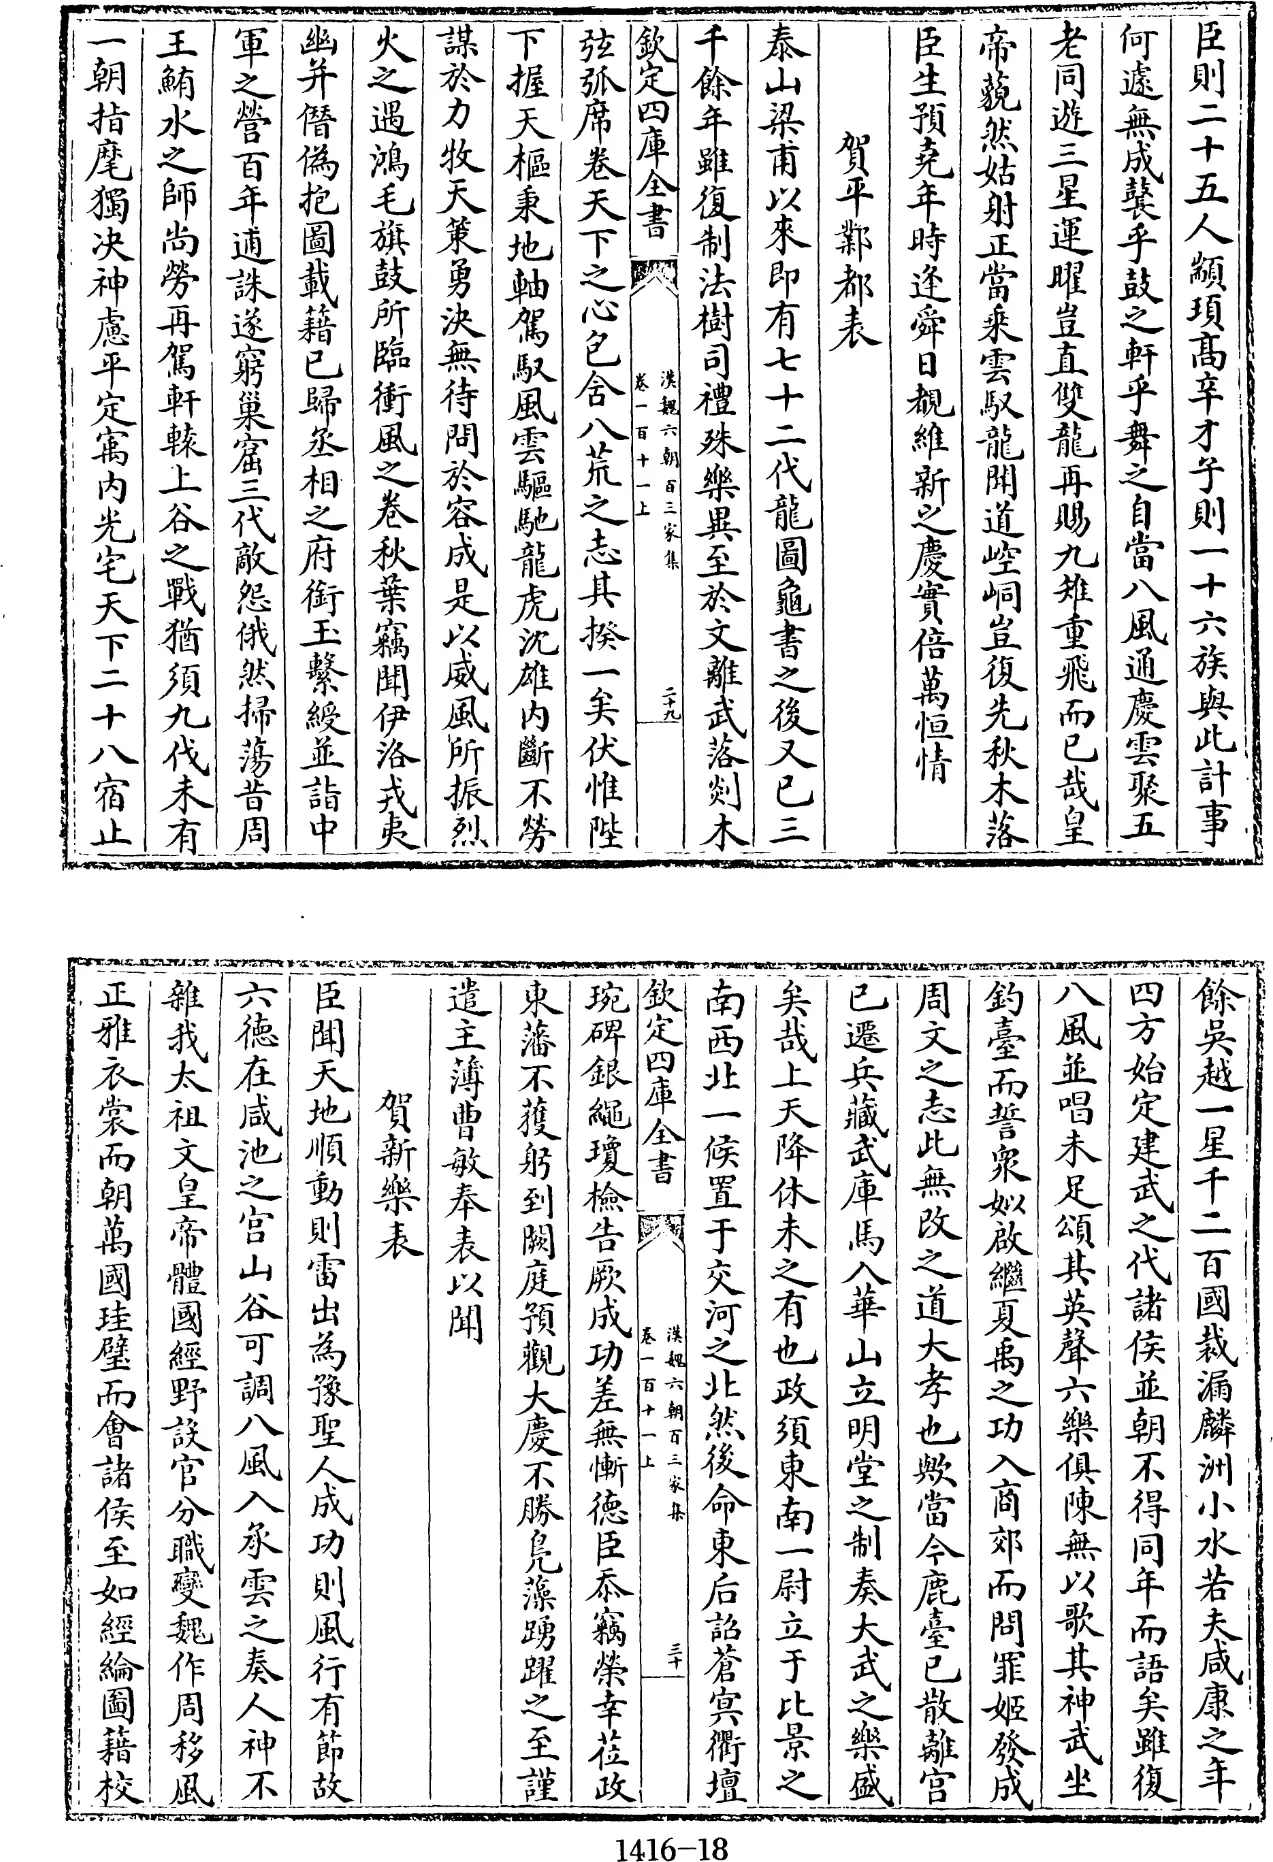 臣則二十五人顓頊高辛才子則一十六族與此計事
何遽無成襲乎鼓之軒乎舞之自當八風通慶雲聚五
老同遊三星運曜豈直雙龍再賜九雉重飛而已哉皇
帝藐然姑射正當乘雲馭龍問道崆峒豈復先秋木落
臣生預堯年時逢舜日覩維新之慶實倍萬恒情
賀平鄴都表
泰山梁甫以來即有七十二代龍圖龜書之後又已三
千餘年雖復制法樹司禮殊樂異至於文離武落剡木
欽定四庫全書
漢魏六朝百三家集
卷一百十一上
二十九
弦弧席卷天下之心包舍八荒之志其揆一矣伏惟陛
下握天樞秉地軸駕馭風雲驅馳龍虎沈雄内斷不勞
謀於力牧天策勇決無待問於容成是以威風所振烈
火之遇鴻毛旗鼓所臨衝風之卷秋葉竊聞伊洛戎夷
幽并僭偽抱圖載籍已歸丞相之府銜玉繫綬並詣中
軍之營百年逋誅遂窮巢窟三代敵怨俄然掃蕩昔周
王鮪水之師尚勞再駕軒轅上谷之戰猶須九伐未有
一朝指麾獨決神慮平定㝢内光宅天下二十八宿止
餘吳越一星千二百國裁漏麟洲小水若夫咸康之年
四方始定建武之代諸侯並朝不得同年而語矣雖復
八風並唱未足頌其英聲六樂俱陳無以歌其神武坐
釣臺而誓衆姒啟繼夏禹之功入商郊而問罪姬發成
周文之志此無改之道大孝也歟當今鹿臺已散離宮
已遷兵藏武庫馬入華山立明堂之制奏大武之樂盛
矣哉上天降休未之有也政須東南一尉立于比景之
南西北一候置于交河之北然後命東后詔蒼㝠衢壇
欽定四庫全書
漢魏六朝百三家集
卷一百十一上
三十
琬碑銀繩瓊檢告厥成功差無慚德臣忝竊榮幸莅政
東藩不獲躬到闕庭預觀大慶不勝鳧藻踴躍之至謹
遣主簿曹敏奉表以聞
賀新樂表
臣聞天地順動則雷出為豫聖人成功則風行有節故
六德在咸池之宮山谷可調八風入承雲之奏人神不
雜我太祖文皇帝體國經野設官分職變魏作周移風
正雅衣裳而朝萬國珪璧而會諸侯至如經綸圖籍校
1416-18